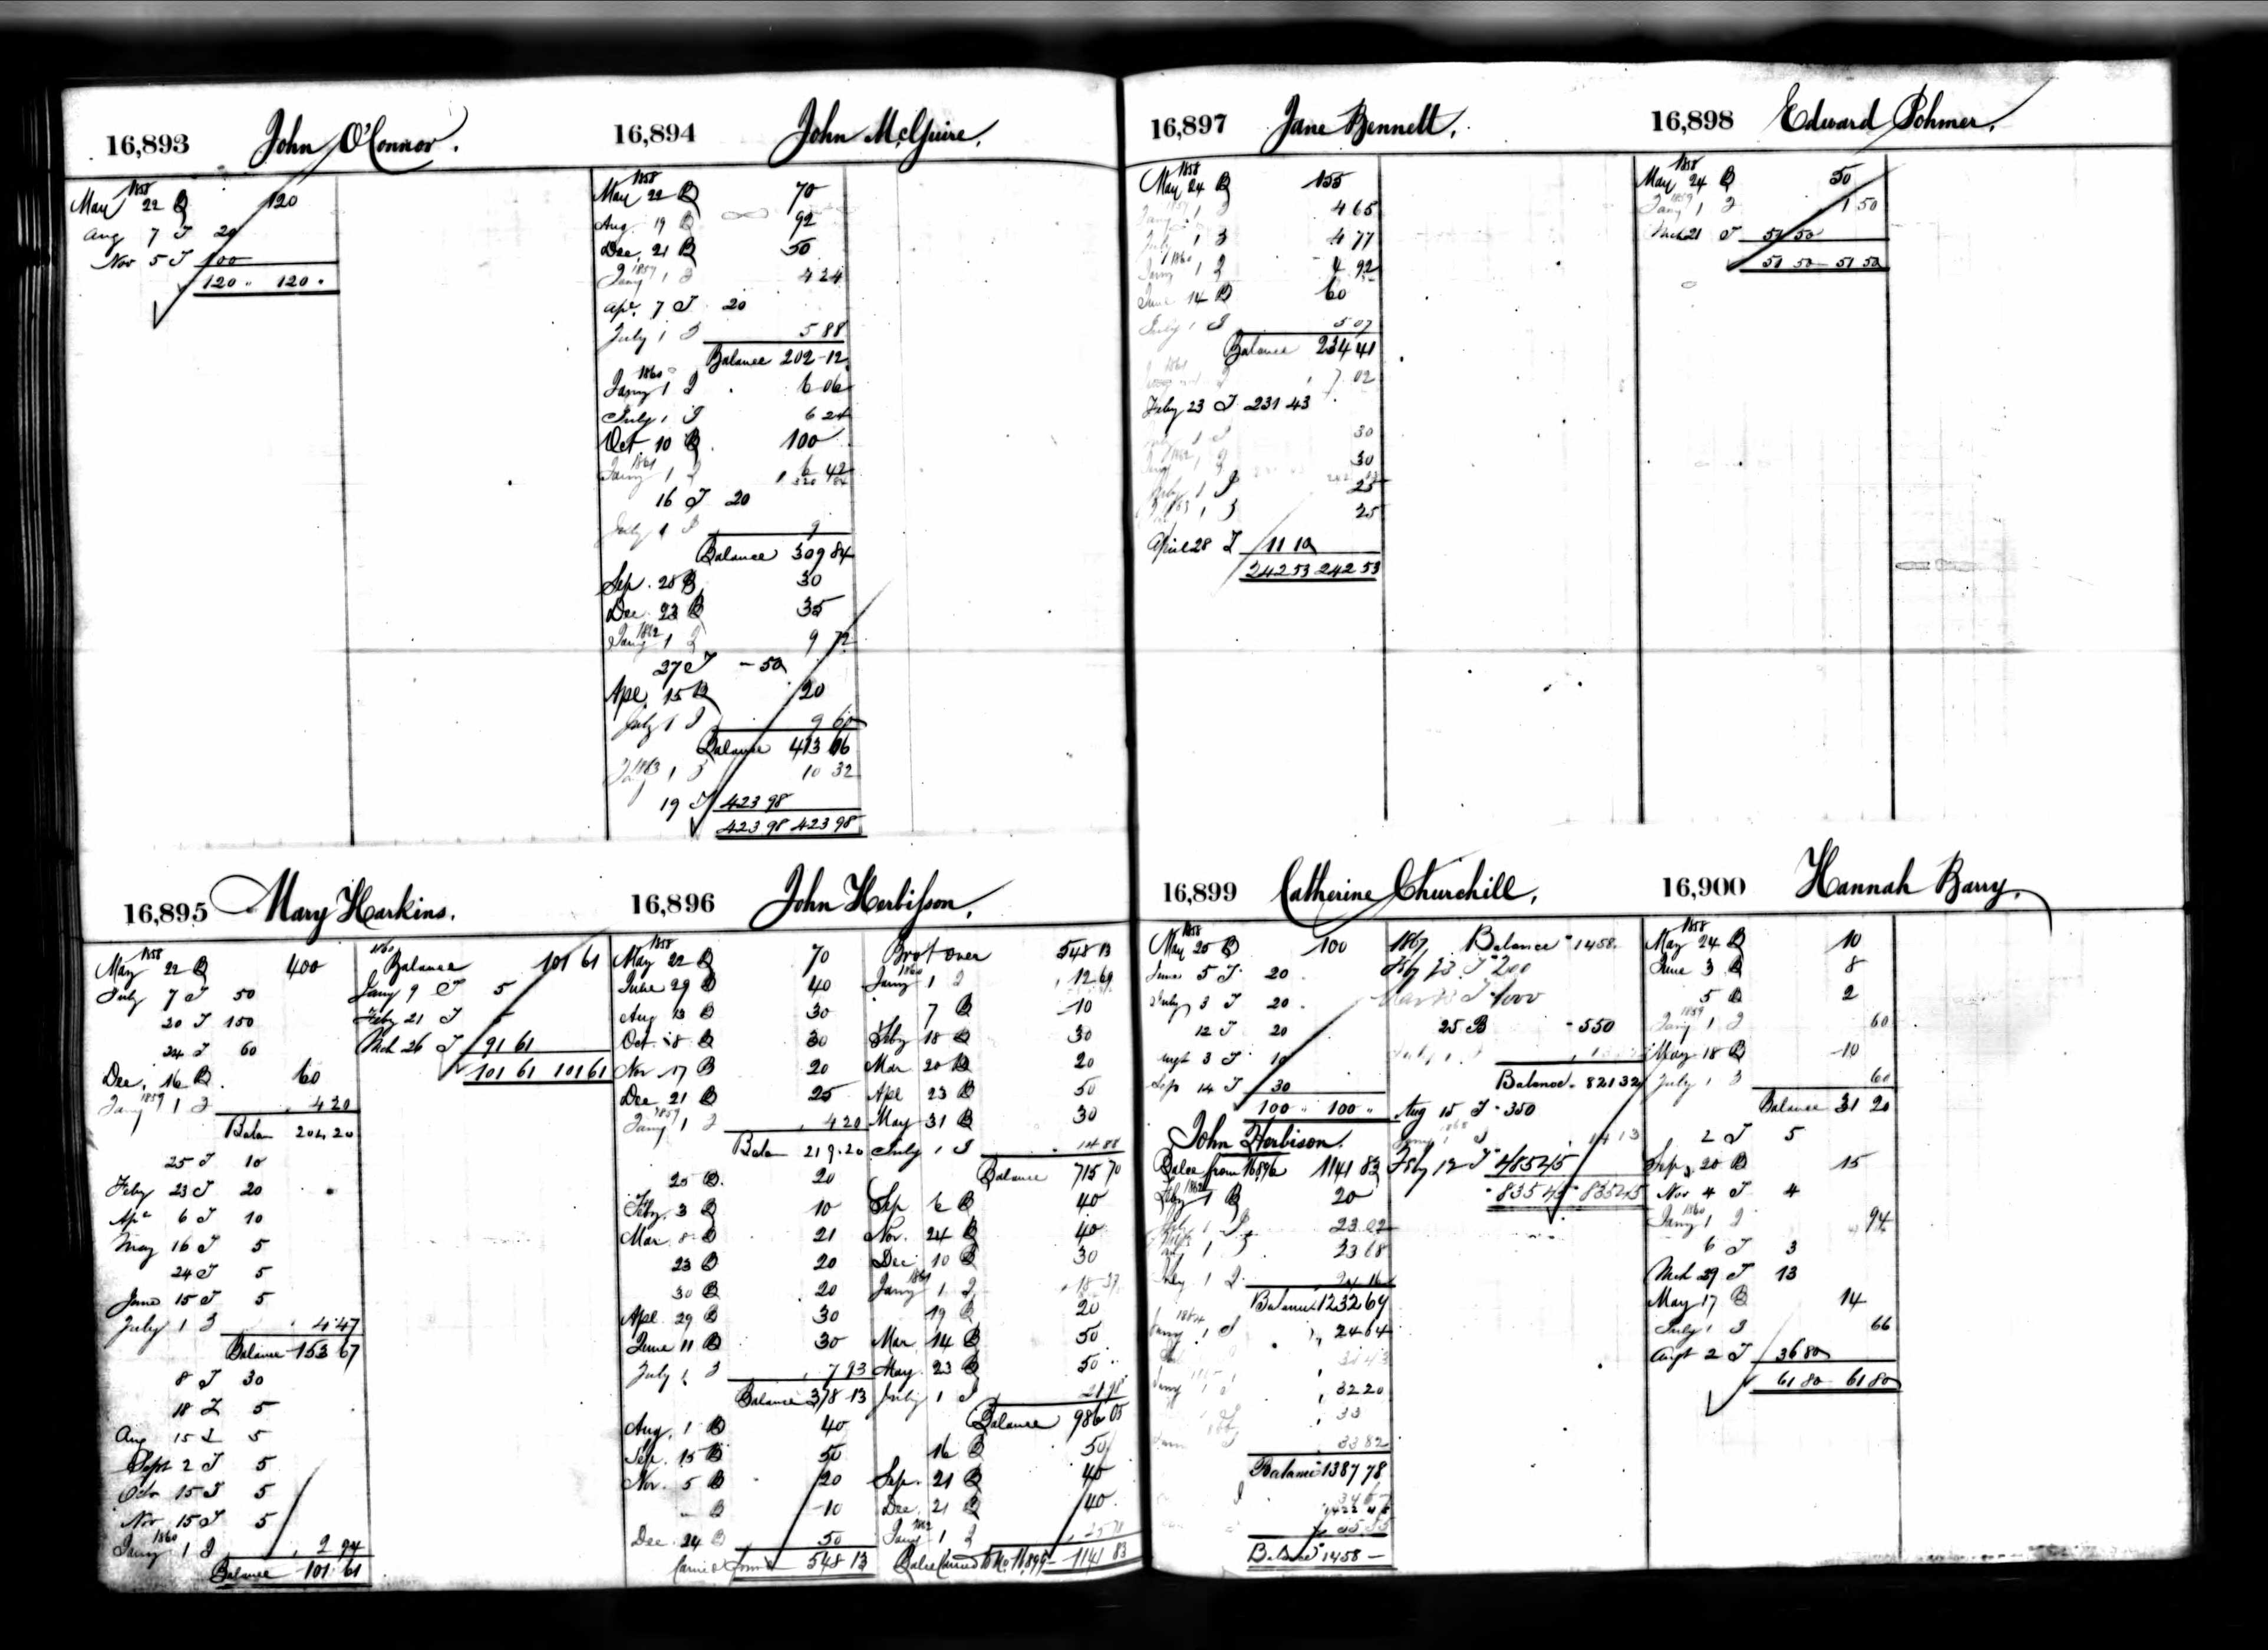 16,893 John O'Connor.
1858
May 22 B 120
Aug 7 T 20
Nov 5 T 100
120 " 120 "
16,894 John McGuire.
1858
May 22 B 70
Aug. 19 B 92
Dec. 21 B 50
1859
Jany 1 I 4 24
Apl. 7 T 20
July 1 I 5 88
Balance 202-12
1860
Jany 1 I 6 06
July 1 I 6 24
Oct. 10 B 100
1861
Jany 1 I 6 42
16 T 20
July 1 I 9
Balance 309 84
Sep. 28 B 30
Dec. 23 B 35
1862
Jany 1 I 9 72
27 T - 50
Apl. 15 B 20
July 1 I 9 60
Balance 413 66
1863
Jany 1 I 10 32
19 T 423 98
423 98 423 98
16,895 Mary Harkins.
1858
May 22 B 400
July 7 T 50
20 T 150
24 T 60
Dec. 16 B 60
1859
Jany 1 I 4 20
Balan 204 20
25 T 10
Feby 23 T 20
Apl 6 T 10
May 16 T 5
24 T 5
June 15 T 5
July 1 I 4 47
Balance 153 67
8 T 30
18 T 5
Aug 15 T 5
Sept 2 T 5
Octr 15 T 5
Nov 15 T 5
1860
Jany 1 I 2 94
Balance 101 61
1860
Balance 101 61
Jany 9 T 5
Feby 21 T 5
Mch 26 T 91 61
101 61 101 61
16,896 John Herbisson.
1858
May 22 B 70
June 29 B 40
Aug 13 B 30
Oct. 8 B 30
Nov 17 B 20
Dec 21 B 25
1859
Jany 1 I 4 20
Balan 219.20
25 B. 20
Feby. 3 B 10
Mar 8 B 21
23 B 20
30 B 20
Apl 29 B 30
June 11 B 30
July 1 I 7 93
Balance 378 13
Aug. 1 B 40
Sep. 15 B 50
Nov. 5 B 20
" B 10
Dec. 24 B 50
548 13
Brot over 548 13
1860
Jany 1 I 12 69
7 B 10
Feby 18 B 30
Mar 20 B 20
Apl 23 B 50
May 31 B 30
July 1 I 14 88
Balance 715 70
Sep 6 B 40
Nov. 24 B 40
Dec 10 B 30
1861
Jany 1 I 18 37
19 B 20
Mar 14 B 50
May 23 B 50
July 1 I 21 98
Balance 986 05
16 B 50
Sep. 21 B 40
Dec. 21 B 40
1862
Jany 1 I 25 78
Balce Carried to No. 16,899 1141 83
16,897 Jane Bennett.
1858
May 24 B 155
1859
Jany 1 I 4 65
July 1 I 4 77
1860
Jany 1 I 4 92
June 14 B 60
July 1 I 5 07
Balance 234 41
1861
7 02
Feby 23 T 231 43
1 I 30
1862
Jany 1 I 30
July 1 I 25
1863
1 I 25
April 28 T 11 10
242 53 242 53
16,898 Edward Sohmer.
1858
May 24 B 50
1859
Jany 1 I 1 50
Mch 21 T 51 50
51 50 51 50
16,899 Catherine Churchill.
1858
May 25 B 100
June 5 T 20
July 3 T 20
12 T 20
Augt 3 T 10
Sep 14 T 30
100 " 100 "
John Herbison.
Balce from 16896 1141 83
1862
Feby 1 B 20
July 1 I 23 02
1 I 23 68
July 1 I 24 16
Balance 1232 69
1864
Jany 1 I 24 64
1865
Jany 1 I 32 20
33
33 82
Balance 1387 78
Balance 1458 -
1867 Balance 1458.
Feby 23 T 200
T 1000
25 B 550
Balance 821 32
Aug 15 T 350
1868
Jany 1 I 14 13
Feby 12 T 485 45
835 45 835 45
16,900 Hannah Barry.
1858
May 24 B 10
June 3 B 8
5 B 2
1859
Jany 1 I 60
May 18 B 10
July 1 I 60
Balance 31 20
2 T 5
Sep. 20 B 15
Nov 4 T 4
1860
Jany 1 I 94
6 T 3
Mch 29 T 13
May 17 B 14
July 1 I 66
Augt 2 T 36 80
61 80 61 80